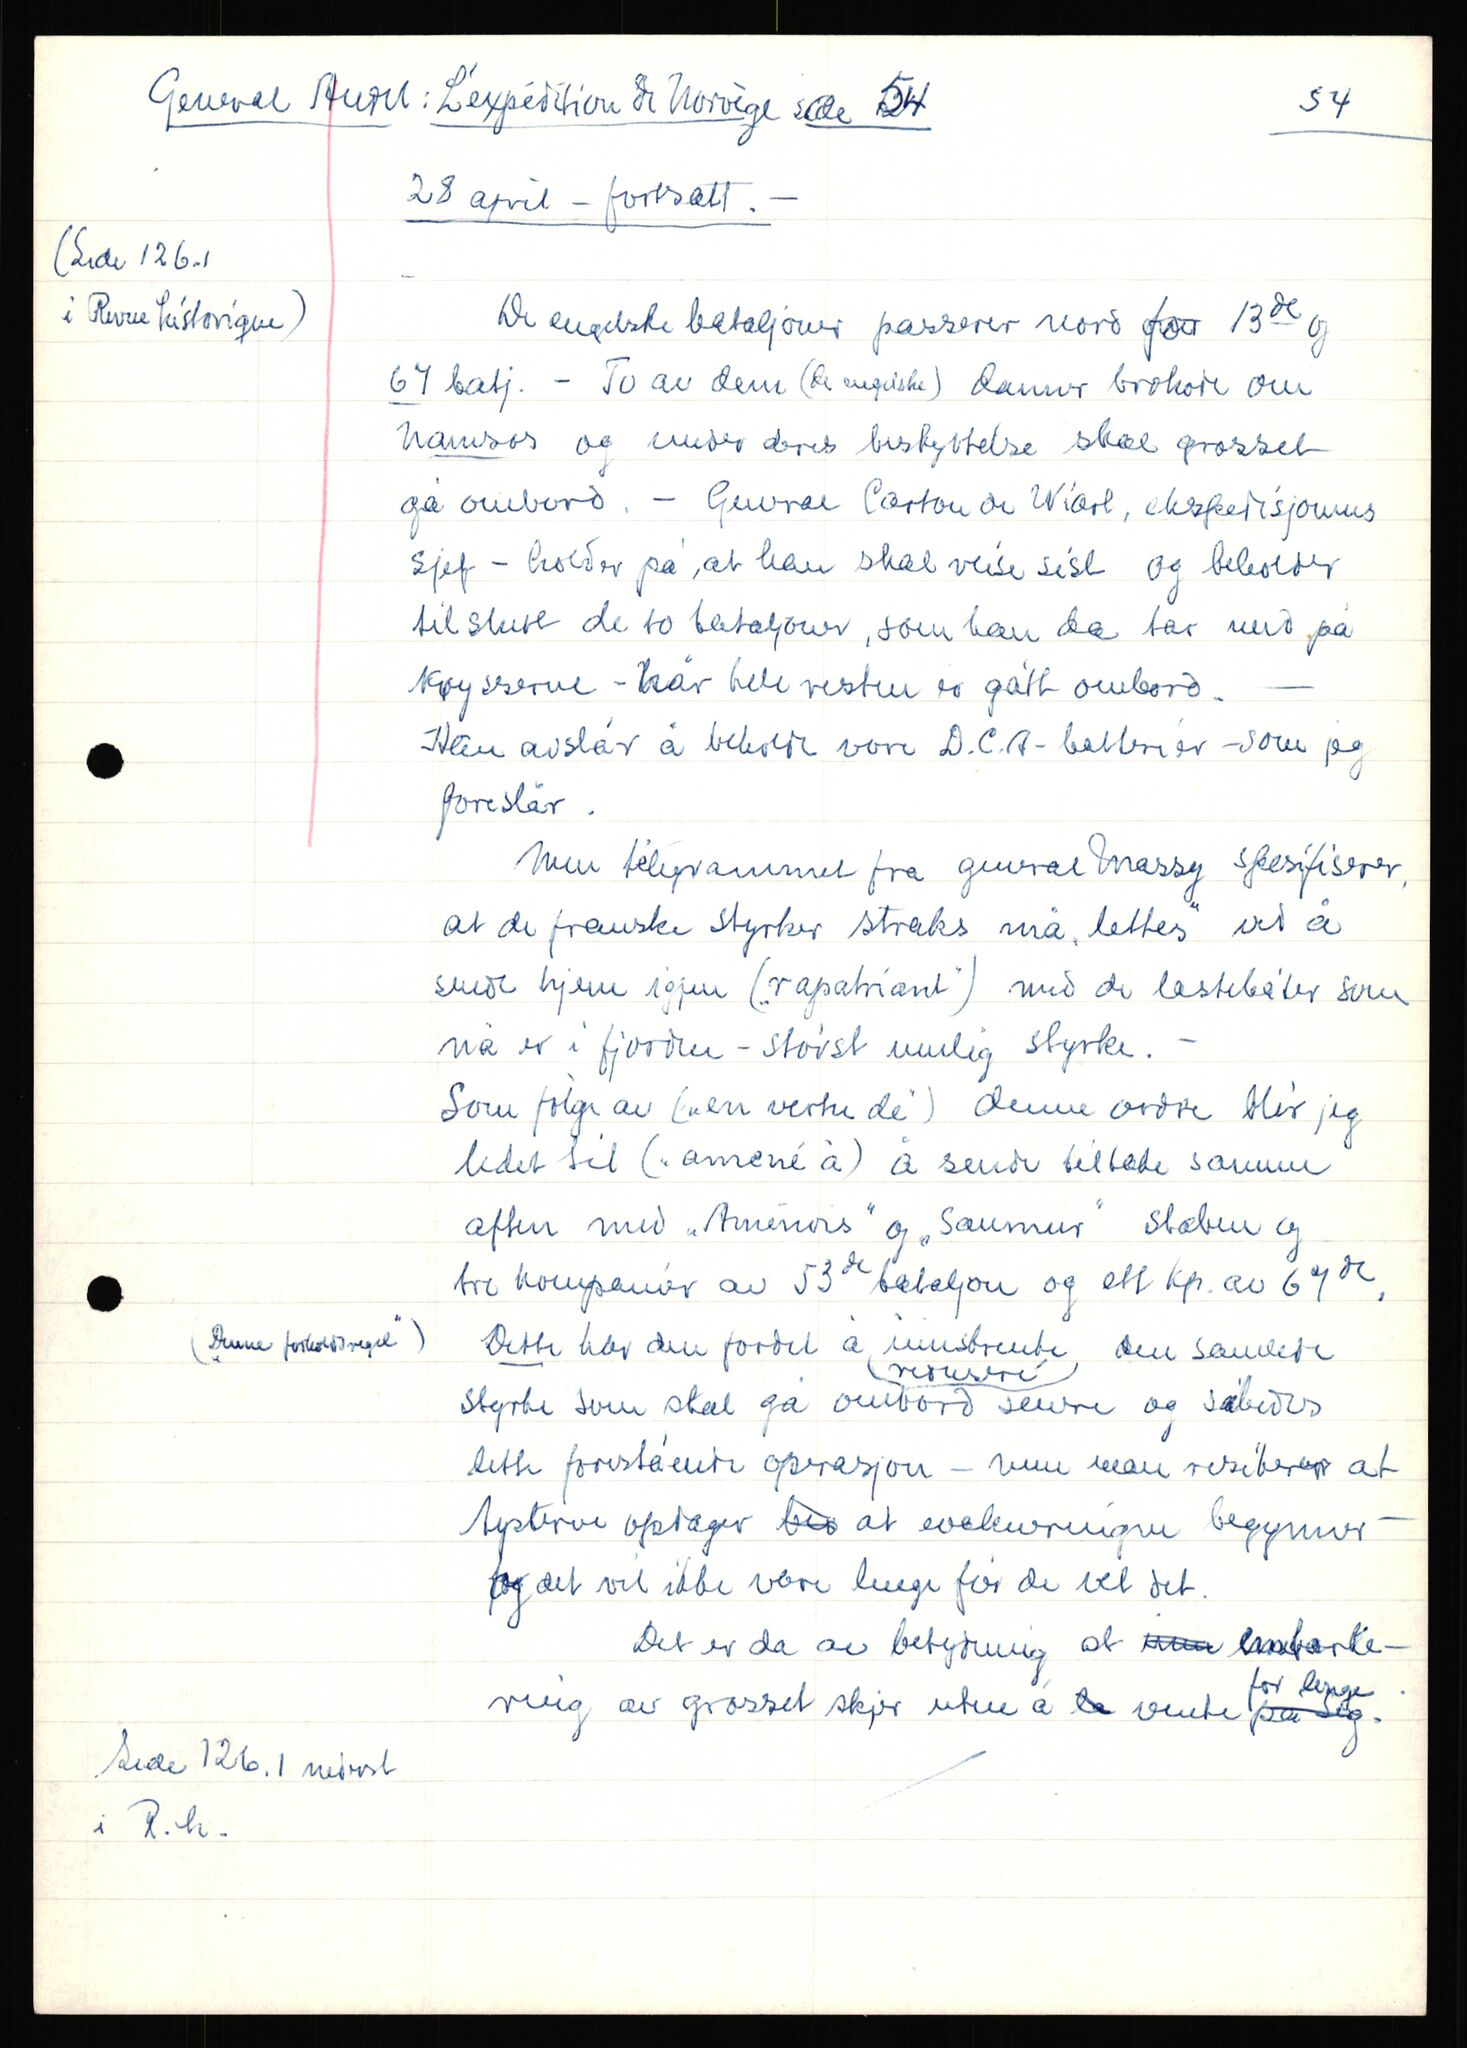 General Audet: L'expédition de Norvège side 54
54
28 april – fortsatt. –
(Side 126.1
i Revue historique)
De engelske bataljoner passerer nord for 13de og
67 batj. – To av dem (de engelske) danner brohode om
Namsos og under deres beskyttelse skal grosset
gå ombord. – General Carton de Wiart, ekspedisjonens
sjef – holder på, at han skal reise sist og beholder
til slutt de to bataljoner, som han da tar med på
krysserne – når hele resten er gått ombord. –
Han avslår å beholde vore D.C.A-batterier – som jeg
foreslår.
Men telegrammet fra general Massy spesifiserer,
at de franske styrker straks må „lettes" ved å
sende hjem igjen („rapatriant") med de lastebåter som
nå er i fjorden – størst mulig styrke. –
Som følge av („en vertu de") denne ordre blir jeg
ledet til („amené à) å sende tilbake samme
aften med „Amiénois" og „Saumur" staben og
tre kompanier av 53de bataljon og ett kp. av 67de.
(„Denne forholdsregel")
Dette har den fordel å innskrenke den samlede
(redusere)
styrke som skal gå ombord senere og således
lette forestående operasjon – men man risikerer at
tyskerne opdager at evakueringen begynner –
og det vil ikke være lenge før de vet det.
Det er da av betydning at embarke-
ring av grosset skjer uten å vente på sig.
for lenge
Side 126.1 nederst
i R.h.